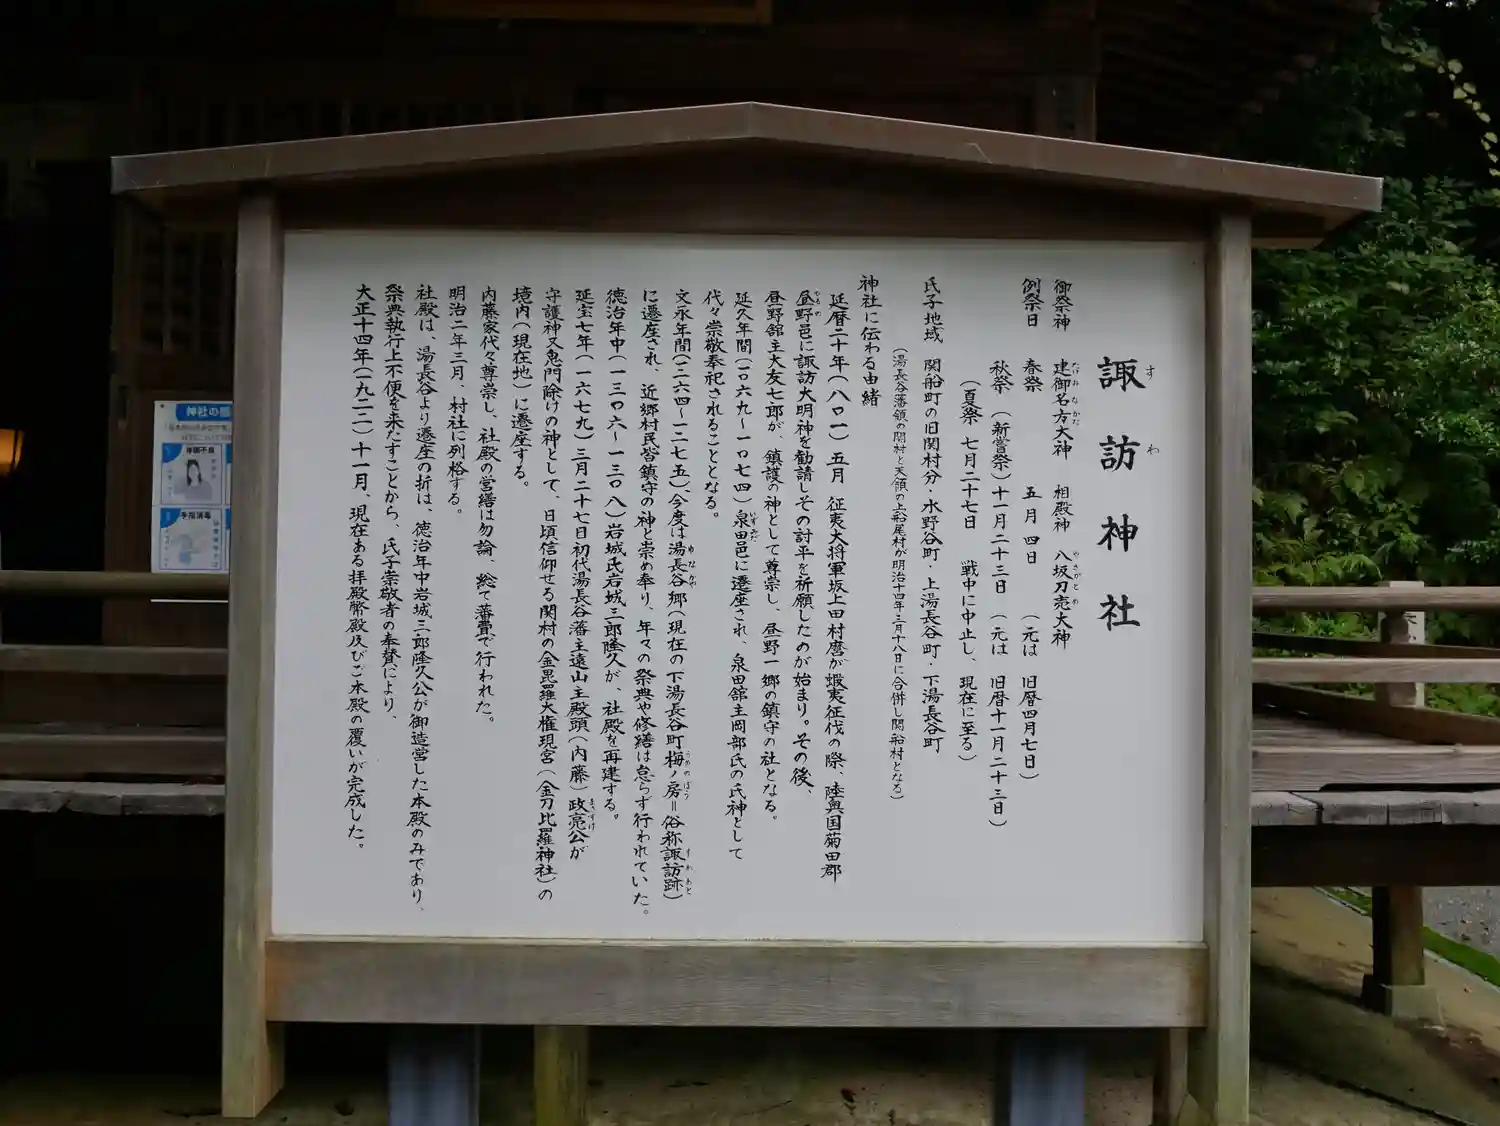 諏訪神社
すわ
御祭神 建御名方大神 相殿神 八坂刀売大神
たけみなかた やさかとめ
例祭日 春祭 五月四日 (元は 旧暦四月七日)
秋祭 (新嘗祭) 十一月二十三日 (元は 旧暦十一月二十三日)
(夏祭 七月二十七日 戦中に中止し、現在に至る)
氏子地域 関船町の旧関村分・水野谷町・上湯長谷町・下湯長谷町
(湯長谷藩領の関村と天領の上船尾村が明治十四年三月十八日に合併し関船村となる)
神社に伝わる由緒
延暦二十年(八〇一)五月 征夷大将軍坂上田村麿が蝦夷征伐の際、陸奥国菊田郡
昼野邑に諏訪大明神を勧請しその討平を祈願したのが始まり。その後、
昼野舘主大友七郎が、鎮護の神として尊崇し、昼野一郷の鎮守の社となる。
延久年間(一〇六九〜一〇七四)泉田邑に遷座され、泉田舘主岡部氏の氏神として
代々崇敬奉祀されることとなる。
文永年間(一二六四〜一二七五)、今度は湯長谷郷(現在の下湯長谷町梅ノ房=俗称諏訪跡)
に遷座され、近郷村民皆鎮守の神と崇め奉り、年々の祭典や修繕は怠らず行われていた。
徳治年中(一三〇六〜一三〇八)岩城氏岩城三郎隆久が、社殿を再建する。
延宝七年(一六七九)三月二十七日初代湯長谷藩主遠山主殿頭(内藤)政亮公が
守護神又鬼門除けの神として、日頃信仰せる関村の金毘羅大権現宮(金刀比羅神社)の
境内(現在地)に遷座する。
内藤家代々尊崇し、社殿の営繕は勿論、総て藩費で行われた。
明治二年三月、村社に列格する。
社殿は、湯長谷より遷座の折は、徳治年中岩城三郎隆久公が御造営した本殿のみであり、
祭典執行上不便を来たすことから、氏子崇敬者の奉賛により、
大正十四年(一九二一)十一月、現在ある拝殿幣殿及びご本殿の覆いが完成した。
神社の感
1 体調不良
3 手指消毒